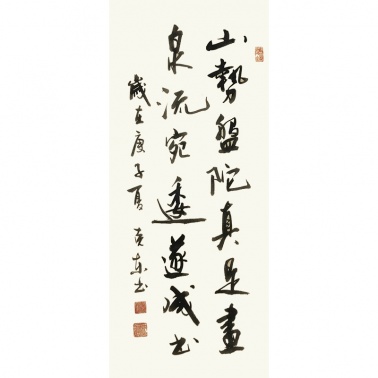 山勢盤陀真是畫
泉流宛委遂成書
歲在庚子夏 克東书